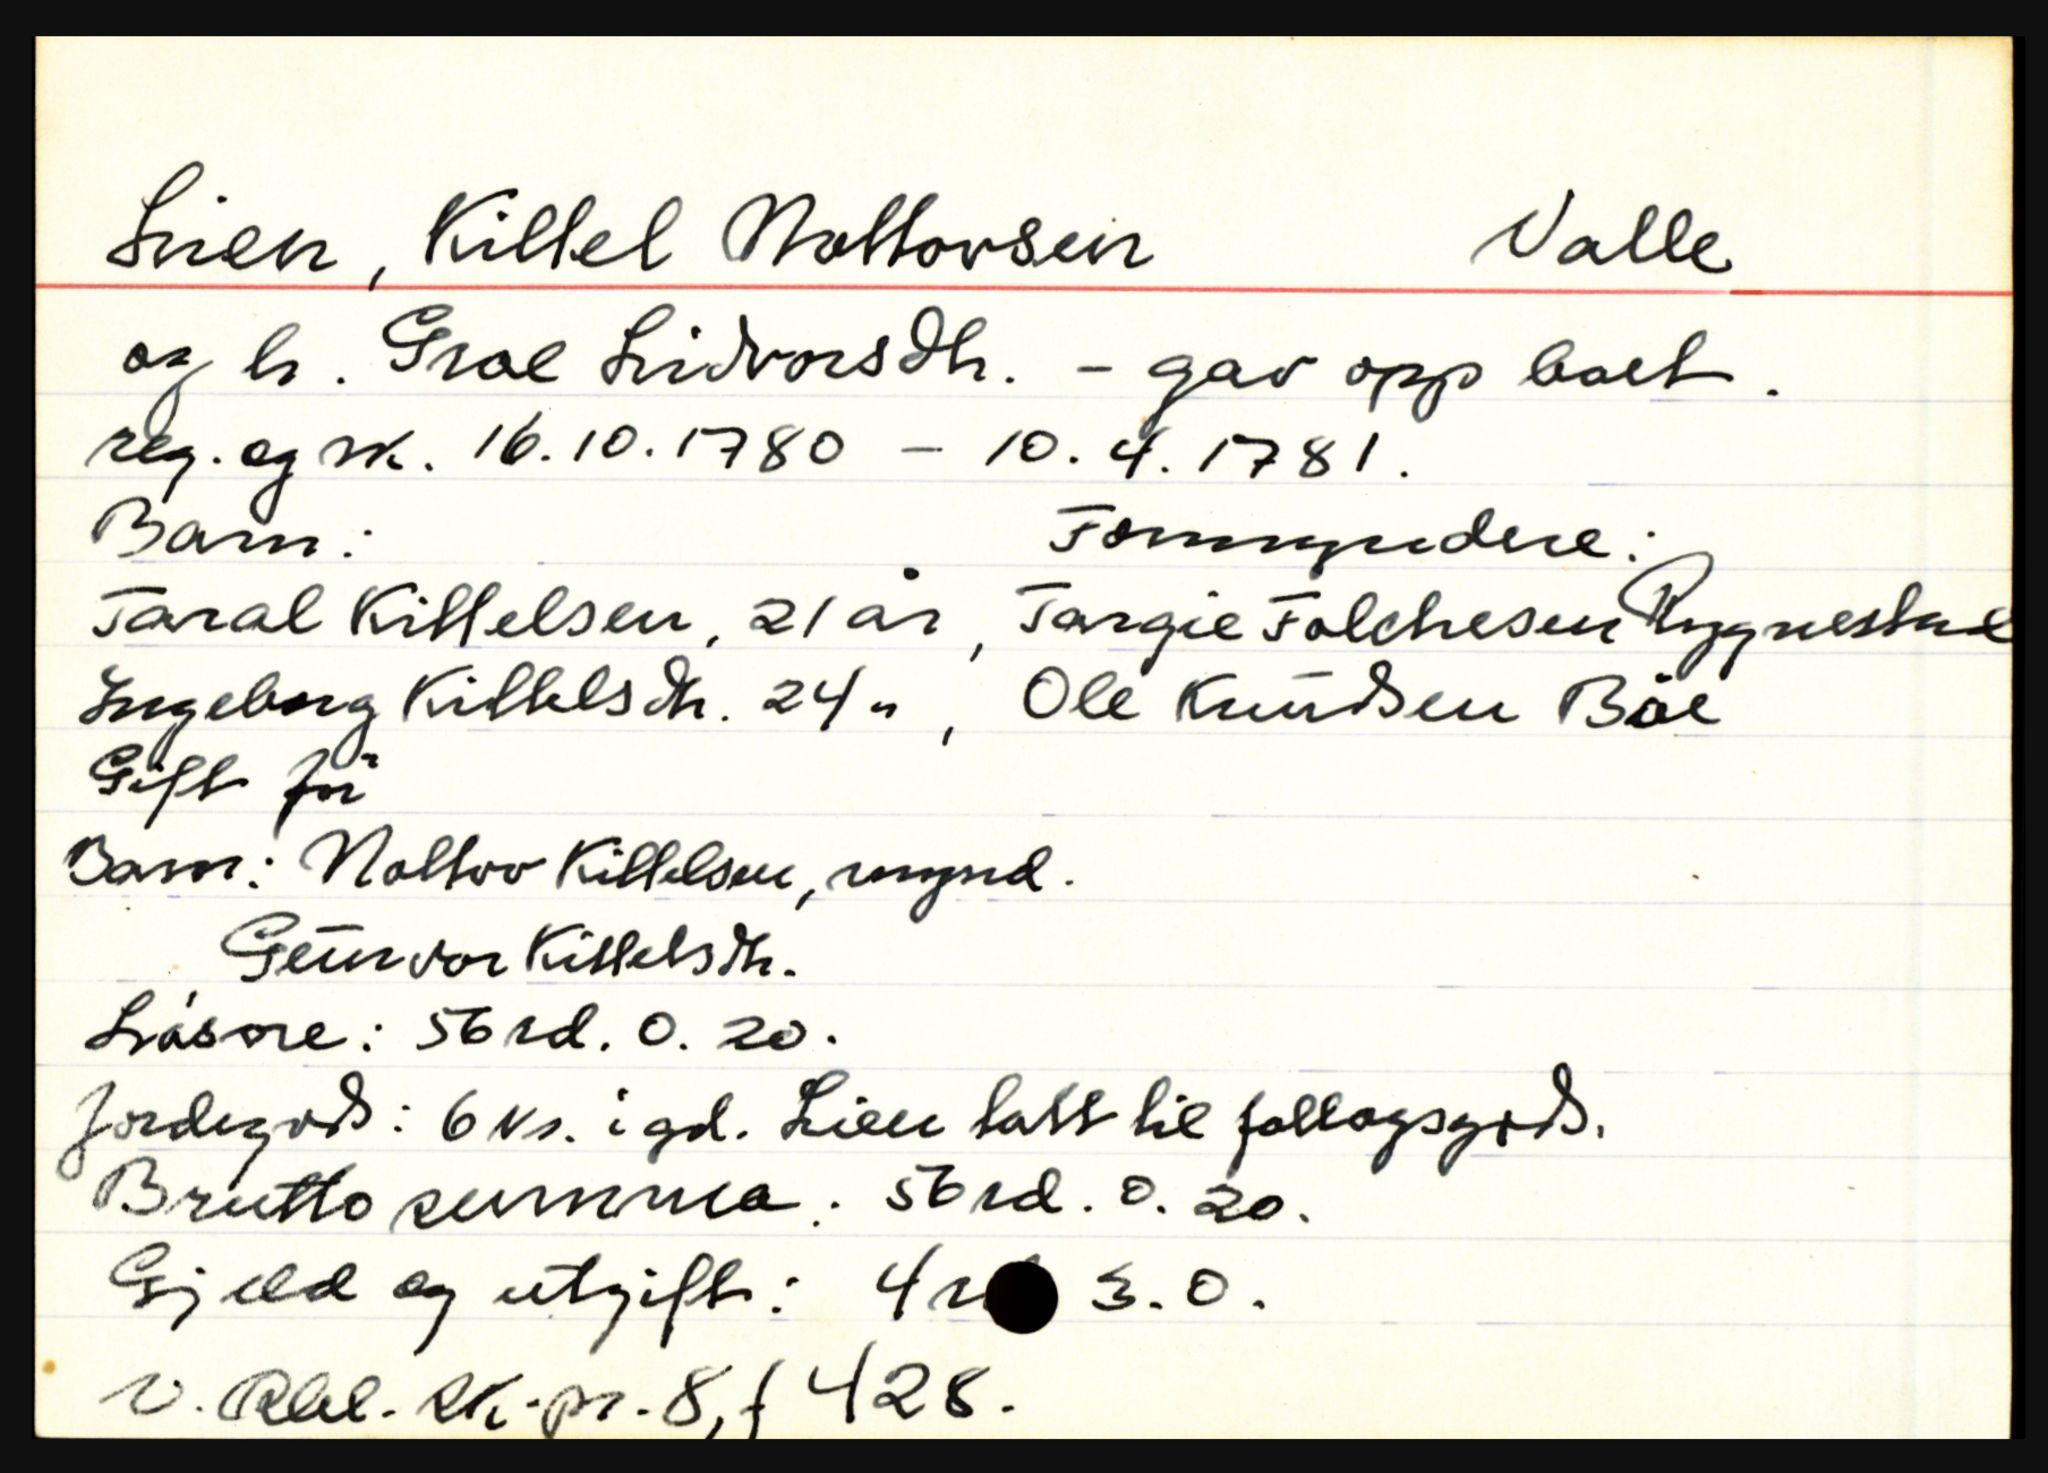 Lien, Kittel Nottovsen Valle
og h. Groe Lidvorsdtr. - gav opp boet.
reg. og sk. 16.10.1780 - 10.4.1781.
Barn: Formyndere:
Taral Kittelsen, 21 år, Targie Folchesen Rygnestad
Ingeborg Kittelsdtr. 24 ", Ole Knudsen Böe
Gift för
Barn: Nottov Kittelsen, mynd.
Gunvor Kittelsdtr.
Lösöre: 56 rd. 0. 20.
Jordegods: 6 ks. i gd. Lien tatt til follogsgods.
Brutto summa: 56 rd. 0. 20.
Gjeld og utgift: 4 3. 0.
V. Rbl. sk. pr. 8, f 428.